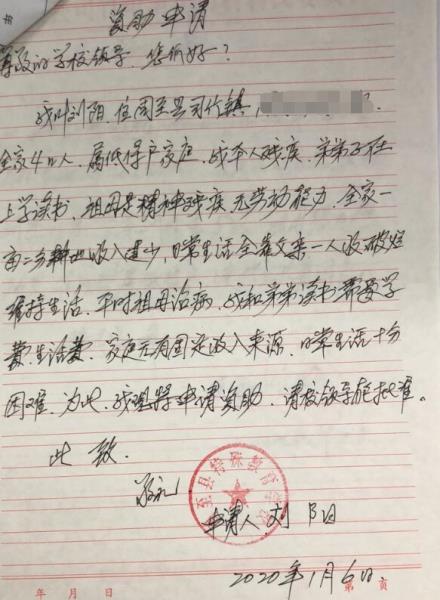 资助申请
尊敬的学校领导、您们好？
我叫刘阳、住周至县司竹镇
全家4口人、属低保户家庭、我本人残疾、弟弟正在
上学读书、祖母是精神残疾、无劳动能力、全家一
亩二分耕地收入甚少、日常生活全靠父亲一人收破烂
维持生活、平时祖母治病、我和弟弟读书都要学
费、生活费、家庭无有固定收入来源、日常生活十分
困难、为此、我现特申请资助、请校领导能批准。
此致、
敬礼
至县特殊教育学校
申请人 刘阳
2020年1月6日
年 月 日
第 页